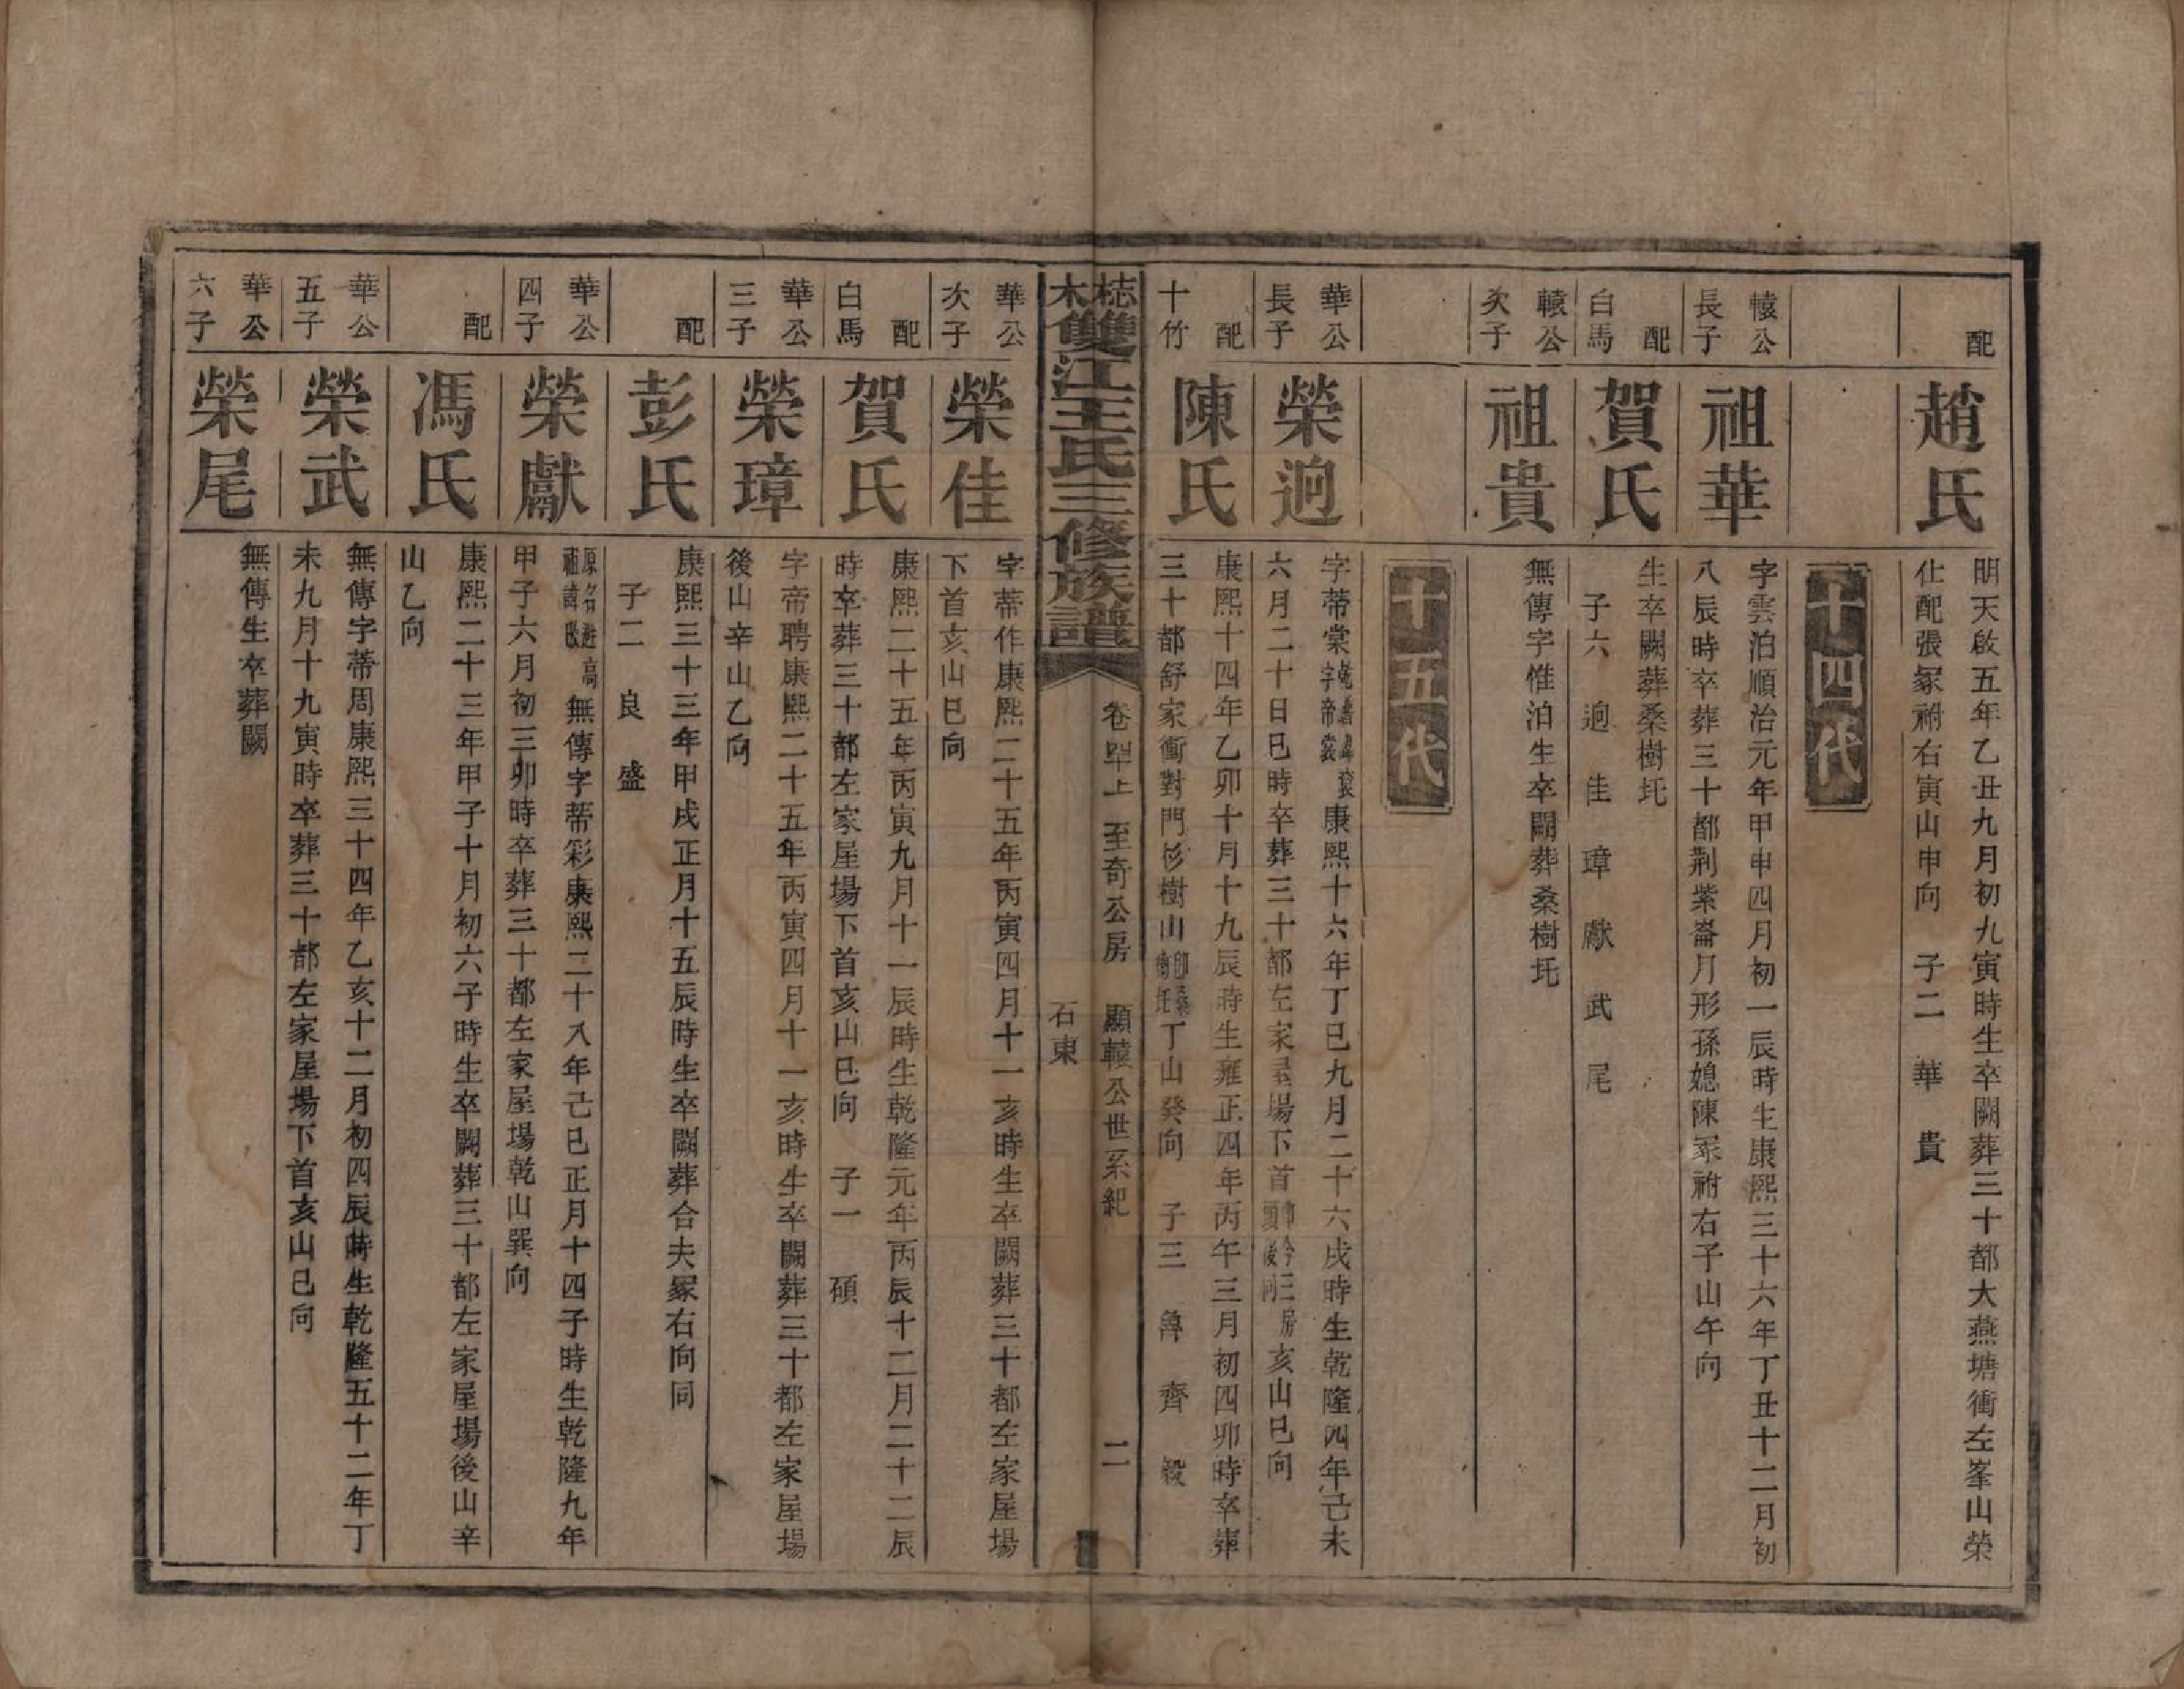 配
趙氏
明天啟五年乙丑九月初九寅時生卒闕葬三十都大燕塘衝左峯山榮
仕配張冢祔右寅山申向 子二 華 貴
十四代
轅公長子
祖華
字雲泊順治元年甲申四月初一辰時生康熙三十六年丁丑十二月初
八辰時卒葬三十都荆紫崙月形孫媳陳冢祔右子山午向
白馬配
賀氏
生卒闕葬桑樹圫
子六 逈 佳 璋 獻 武 尾
轅公次子
祖貴
無傳字惟泊生卒闕葬桑樹圫
十五代
華公長子
榮逈
字蒂棠康熙十六年丁巳九月二十六戌時生乾隆四年己未
六月二十日巳時卒葬三十都左家屋場下首亥山巳向
十竹配
陳氏
康熙十四年乙卯十月十九辰時生雍正四年丙午三月初四卯時卒葬
三十都舒家衝對門杉樹山丁山癸向 子三 魯 齊 毅
梽木雙江王氏三修族譜
卷四上 至奇公房 顯轅公世系紀 二
石東
華公次子
榮佳
字蒂作康熙二十五年丙寅四月十一亥時生卒闕葬三十都左家屋場
下首亥山巳向
白馬配
賀氏
康熙二十五年丙寅九月十一辰時生乾隆元年丙辰十二月二十二辰
時卒葬三十都左家屋場下首亥山巳向 子一 碩
華公三子
榮璋
字帝聘康熙二十五年丙寅四月十一亥時生卒闕葬三十都左家屋場
後山辛山乙向
配
彭氏
康熙三十三年甲戌正月十五辰時生卒闕葬合夫冢右向同
子二 良 盛
華公四子
榮獻
原名避高祖諱改無傳字蒂彩康熙二十八年己巳正月十四子時生乾隆九年
甲子六月初三卯時卒葬三十都左家屋場乾山巽向
配
馮氏
康熙二十三年甲子十月初六子時生卒闕葬三十都左家屋場後山辛
山乙向
華公五子
榮武
無傳字蒂周康熙三十四年乙亥十二月初四辰時生乾隆五十二年丁
未九月十九寅時卒葬三十都左家屋場下首亥山巳向
華公六子
榮尾
無傳生卒葬闕